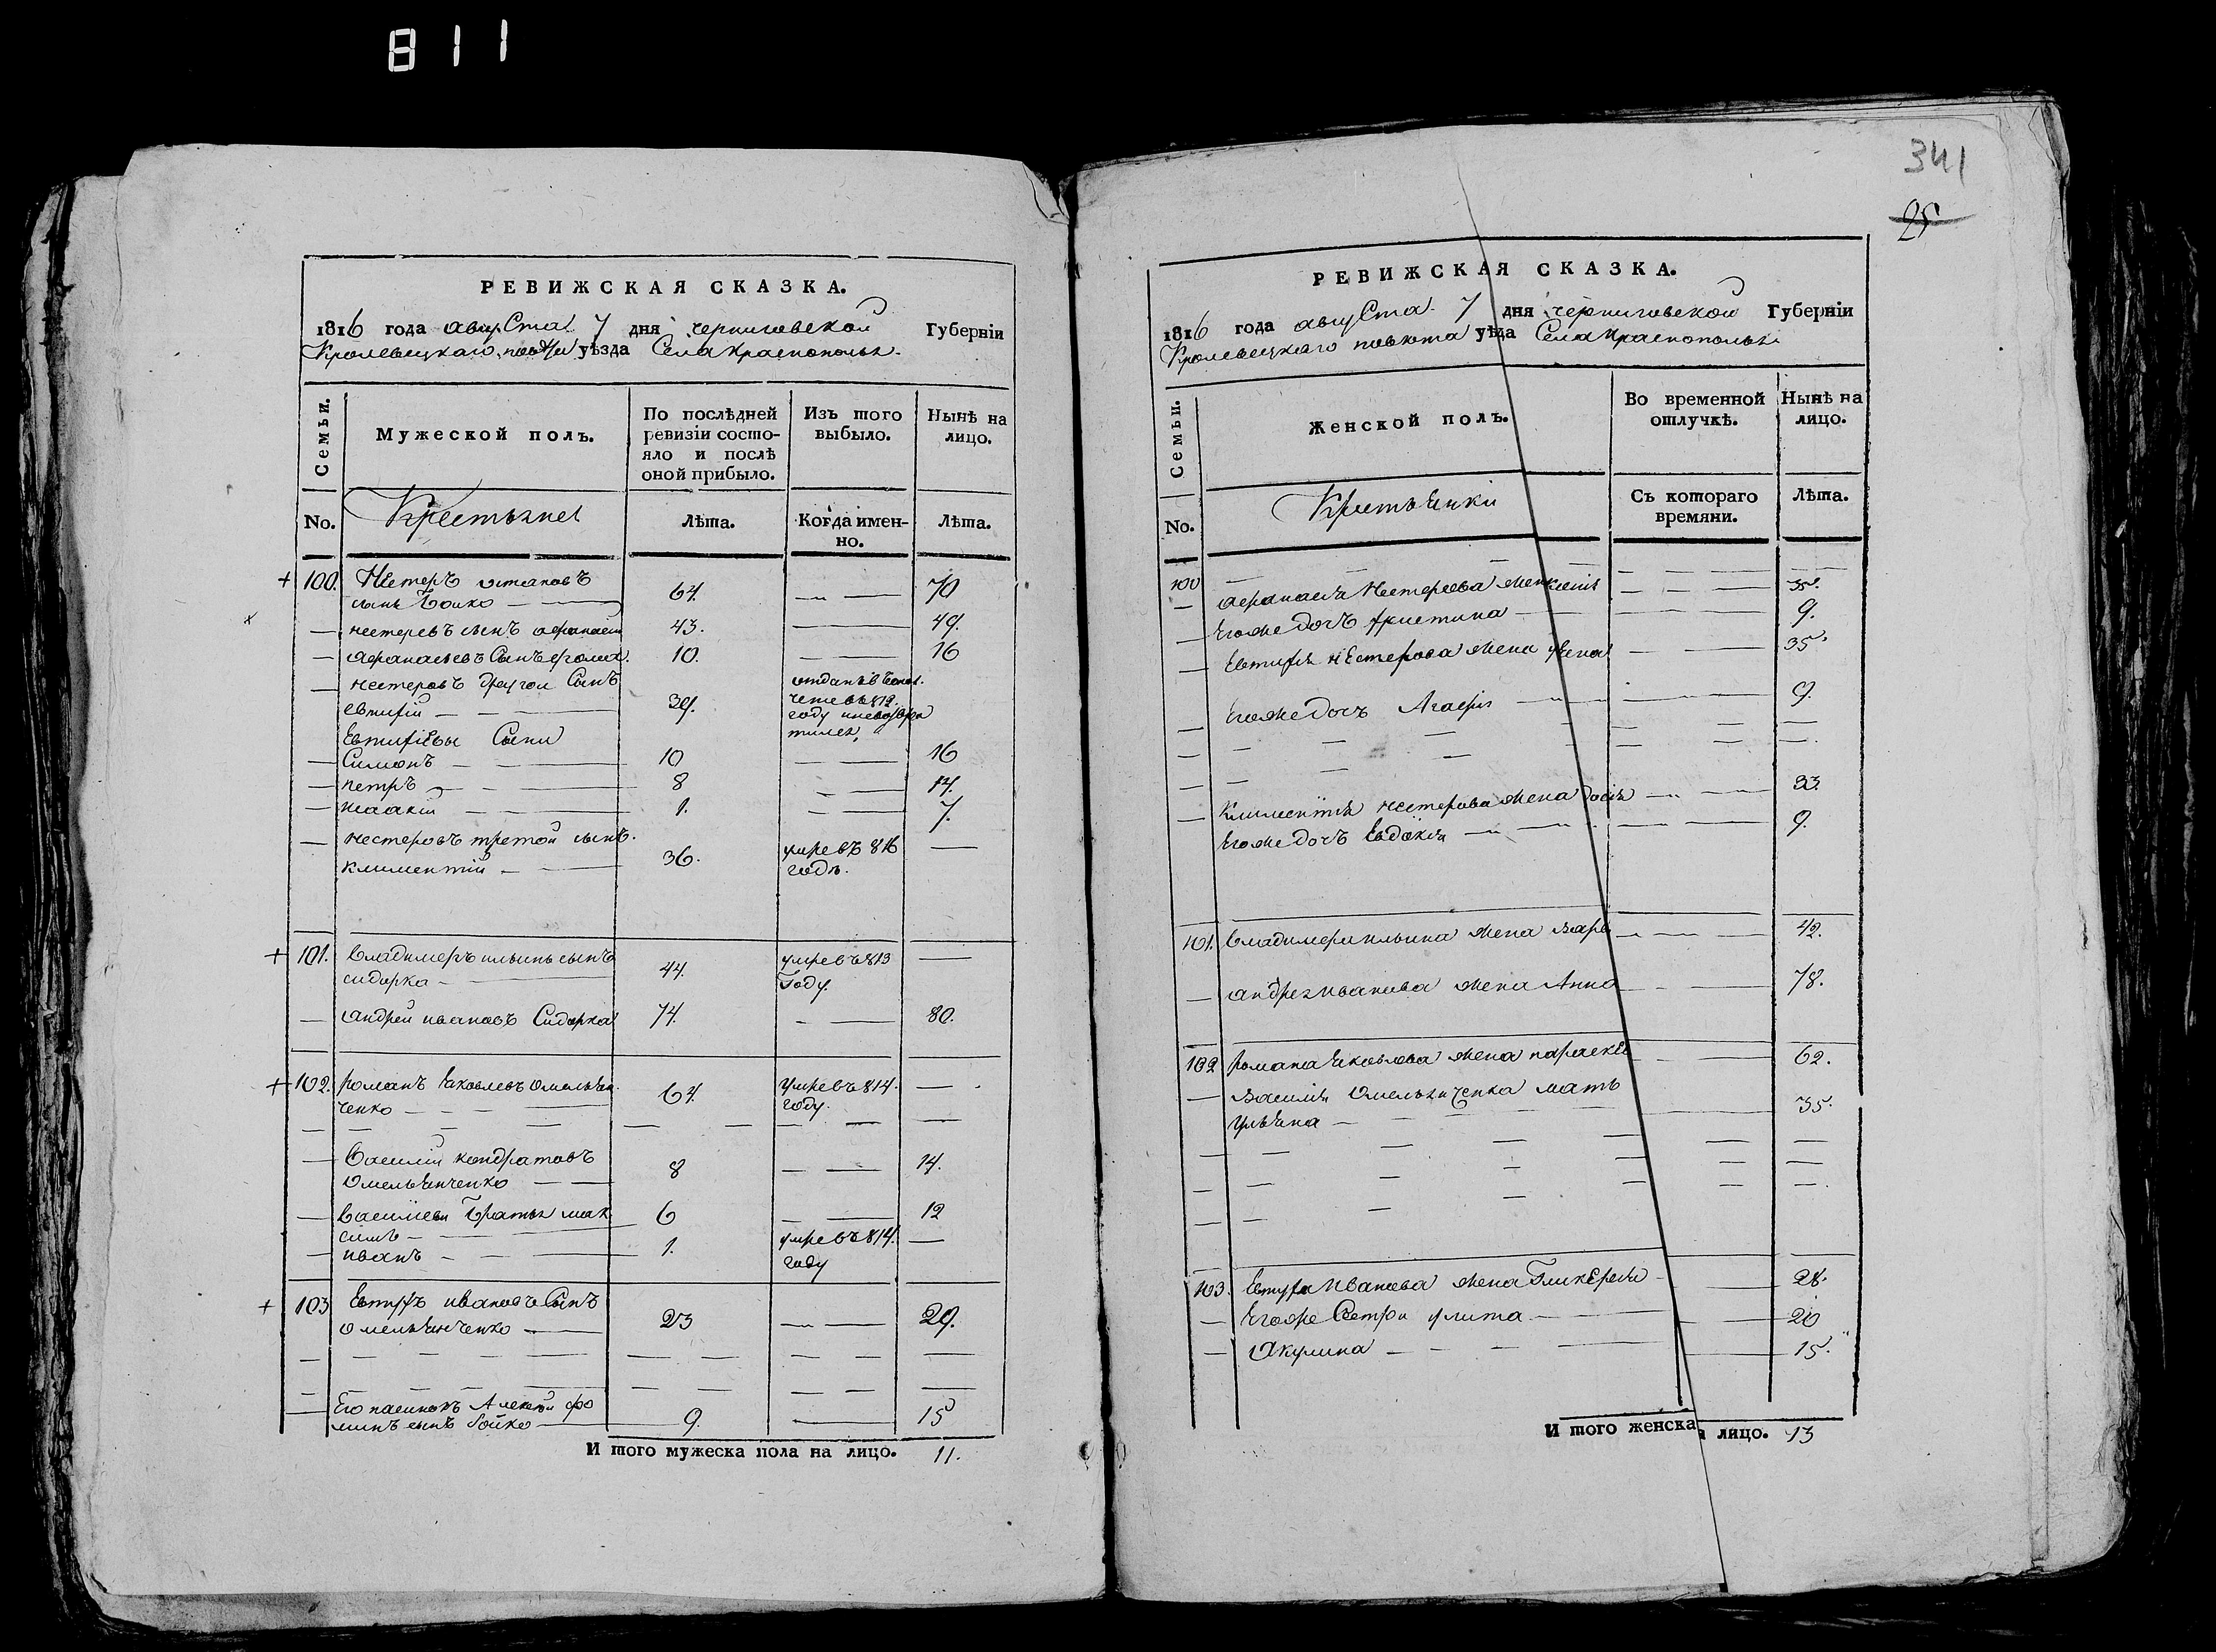 811
РЕВИЖСКАЯ СКАЗКА.
1816 года августа 7 дня черниговской Губерніи
Кролевецкаго повѣта уѣзда Села Краснополья
Семьи.
Мужеской полъ.
По послѣдней ревизіи состо-
яло и послѣ
оной прибыло.
Изъ того выбыло.
Нынѣ на лицо.
No.
Крестьяне
Лѣта.
Когда имен-
но.
Лѣта.
100. Нестеръ остаповъ
сынъ Бойко 64. 70
нестеровъ сынъ афанасій 43. 49.
афанасьевъ Сынъ 10. 16
нестеровъ другой Сынъ
Евтифій 39. отданъ въ
въ 812
году
Евтифіевы Сыны
Симонъ 10 16
петръ 8 14.
Исаакій 1. 7.
нестеровъ третой сынъ
климентій 36. умре въ 816
годѣ.
101. Владимеръ ильинъ сынъ
сидорка 44. умре въ 813
Году.
андрей ивановъ Сидорка 74. 80.
102. романъ яковлевъ омельян
ченко 64. умре въ 814.
году.
Василій кондратовъ
Омельянченко 8 14.
Василіевы Братья мак
симъ 6 12
иванъ 1. умре въ 814.
году
103 Евтухъ ивановъ Сынъ
омельянченко 23 29.
Его пасинокъ Алексѣй фо
минъ сынъ бойко 9. 15
И того мужеска пола на лицо. 11.
341
25
РЕВИЖСКАЯ СКАЗКА.
1816 года августа 7 дня черниговской Губерніи
Кролевецкаго повѣта уѣзда Села Краснополья
Семьи.
Женской полъ.
Во временной отлучкѣ.
Нынѣ на лицо.
No.
Крестьянки
Съ котораго времяни.
Лѣта.
100
афанасія Нестерова жена 35.
Егоже дочъ христина 9.
Евтифія нестерова жена 35.
Егоже дочъ Агафія 9.
Климентія нестерова жена 33.
Егоже дочъ Евдокія 9.
101. Владимера ильина жена Варв 42.
андрея иванова жена Анна 78.
102 романа яковлева жена параскев 62.
Василія Омельянченка мать
ульяна 35.
103. Евтуха Иванова жена Гликерія 28.
Егоже Сестри улита 20
Акулина 15.
И того женска лицо. 13